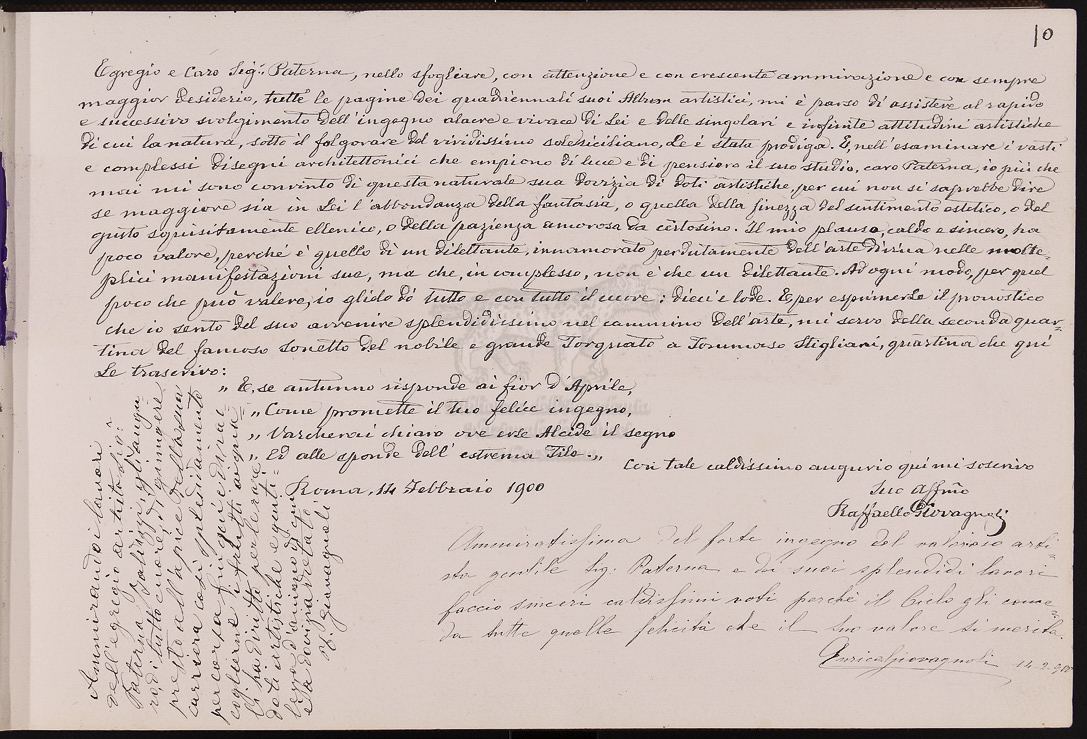 10
Egregio e Caro Sig.r Paterna, nello sfogliare, con attenzione e con crescente ammirazione e con sempre
maggior desiderio, tutte le pagine dei quadriennali suoi Album artistici, mi è parso di assistere al rapido
e successivo svolgimento dell'ingegno alacre e vivace di Lei e delle singolari e infinite attitudini artistiche
di cui la natura, sotto il folgorare del vividissimo sole siciliano, Le è stata prodiga. E, nell'esaminare i vasti
e complessi disegni architettonici che empiono di luce e di pensiero il suo studio, caro Paterna, io più che
mai mi sono convinto di questa naturale sua dovizia di doti artistiche, per cui non si saprebbe dire
se maggiore sia in Lei l'abbondanza della fantasia, o quella della finezza del sentimento estetico, o del
gusto squisitamente ellenico, o della pazienza amorosa da certosino. Il mio plauso, caldo e sincero, ha
poco valore, perché è quello di un dilettante, innamorato perdutamente dell'arte divina nelle molte-
plici manifestazioni sue, ma che, in complesso, non è che un dilettante. Ad ogni modo, per quel
poco che può valere, io glielo dò tutto e con tutto il cuore: dieci e lode. E per esprimerLe il pronostico
che io sento del suo avvenire splendidissimo nel cammino dell'arte, mi servo della seconda quar-
tina del famoso sonetto del nobile e grande Torquato a Tommaso Stigliani, quartina che qui
Le trascrivo:
„ E, se autunno risponde ai fior d'Aprile,
„ Come promette il tuo felice ingegno,
„ Varcherai chiaro ove erse Alcide il segno
„ Ed alle sponde dell'estrema Tile. „
Con tale caldissimo augurio qui mi soscrivo
Roma, 14 Febbraio 1900
Suo Affmo
Raffaello Giovagnoli
Ammiratissima del forte ingegno del valoroso arti-
sta gentile Sig. Paterna e dei suoi splendidi lavori
faccio sinceri caldissimi voti perché il Cielo gli conce-
da tutte quelle felicità che il suo valore si merita.
Enrica Giovagnoli 14-2-900
Ammirando i lavori
dell'egregio artista Sig.r
Paterna Baldizzi gli augu-
ro di tutto cuore, di giungere
presto all'apice della sua
carriera così splendidamente
percorsa fin qui ed ivi
cogliere i frutti ai quali
gli han diritto per le rare
doti artistiche e genti-
lezza d'animo